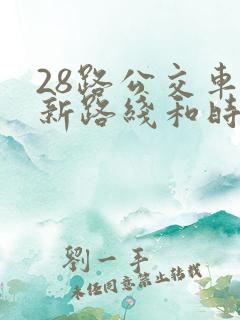 28路公交車
新路綫和時
劉一手
未经同意禁止转载